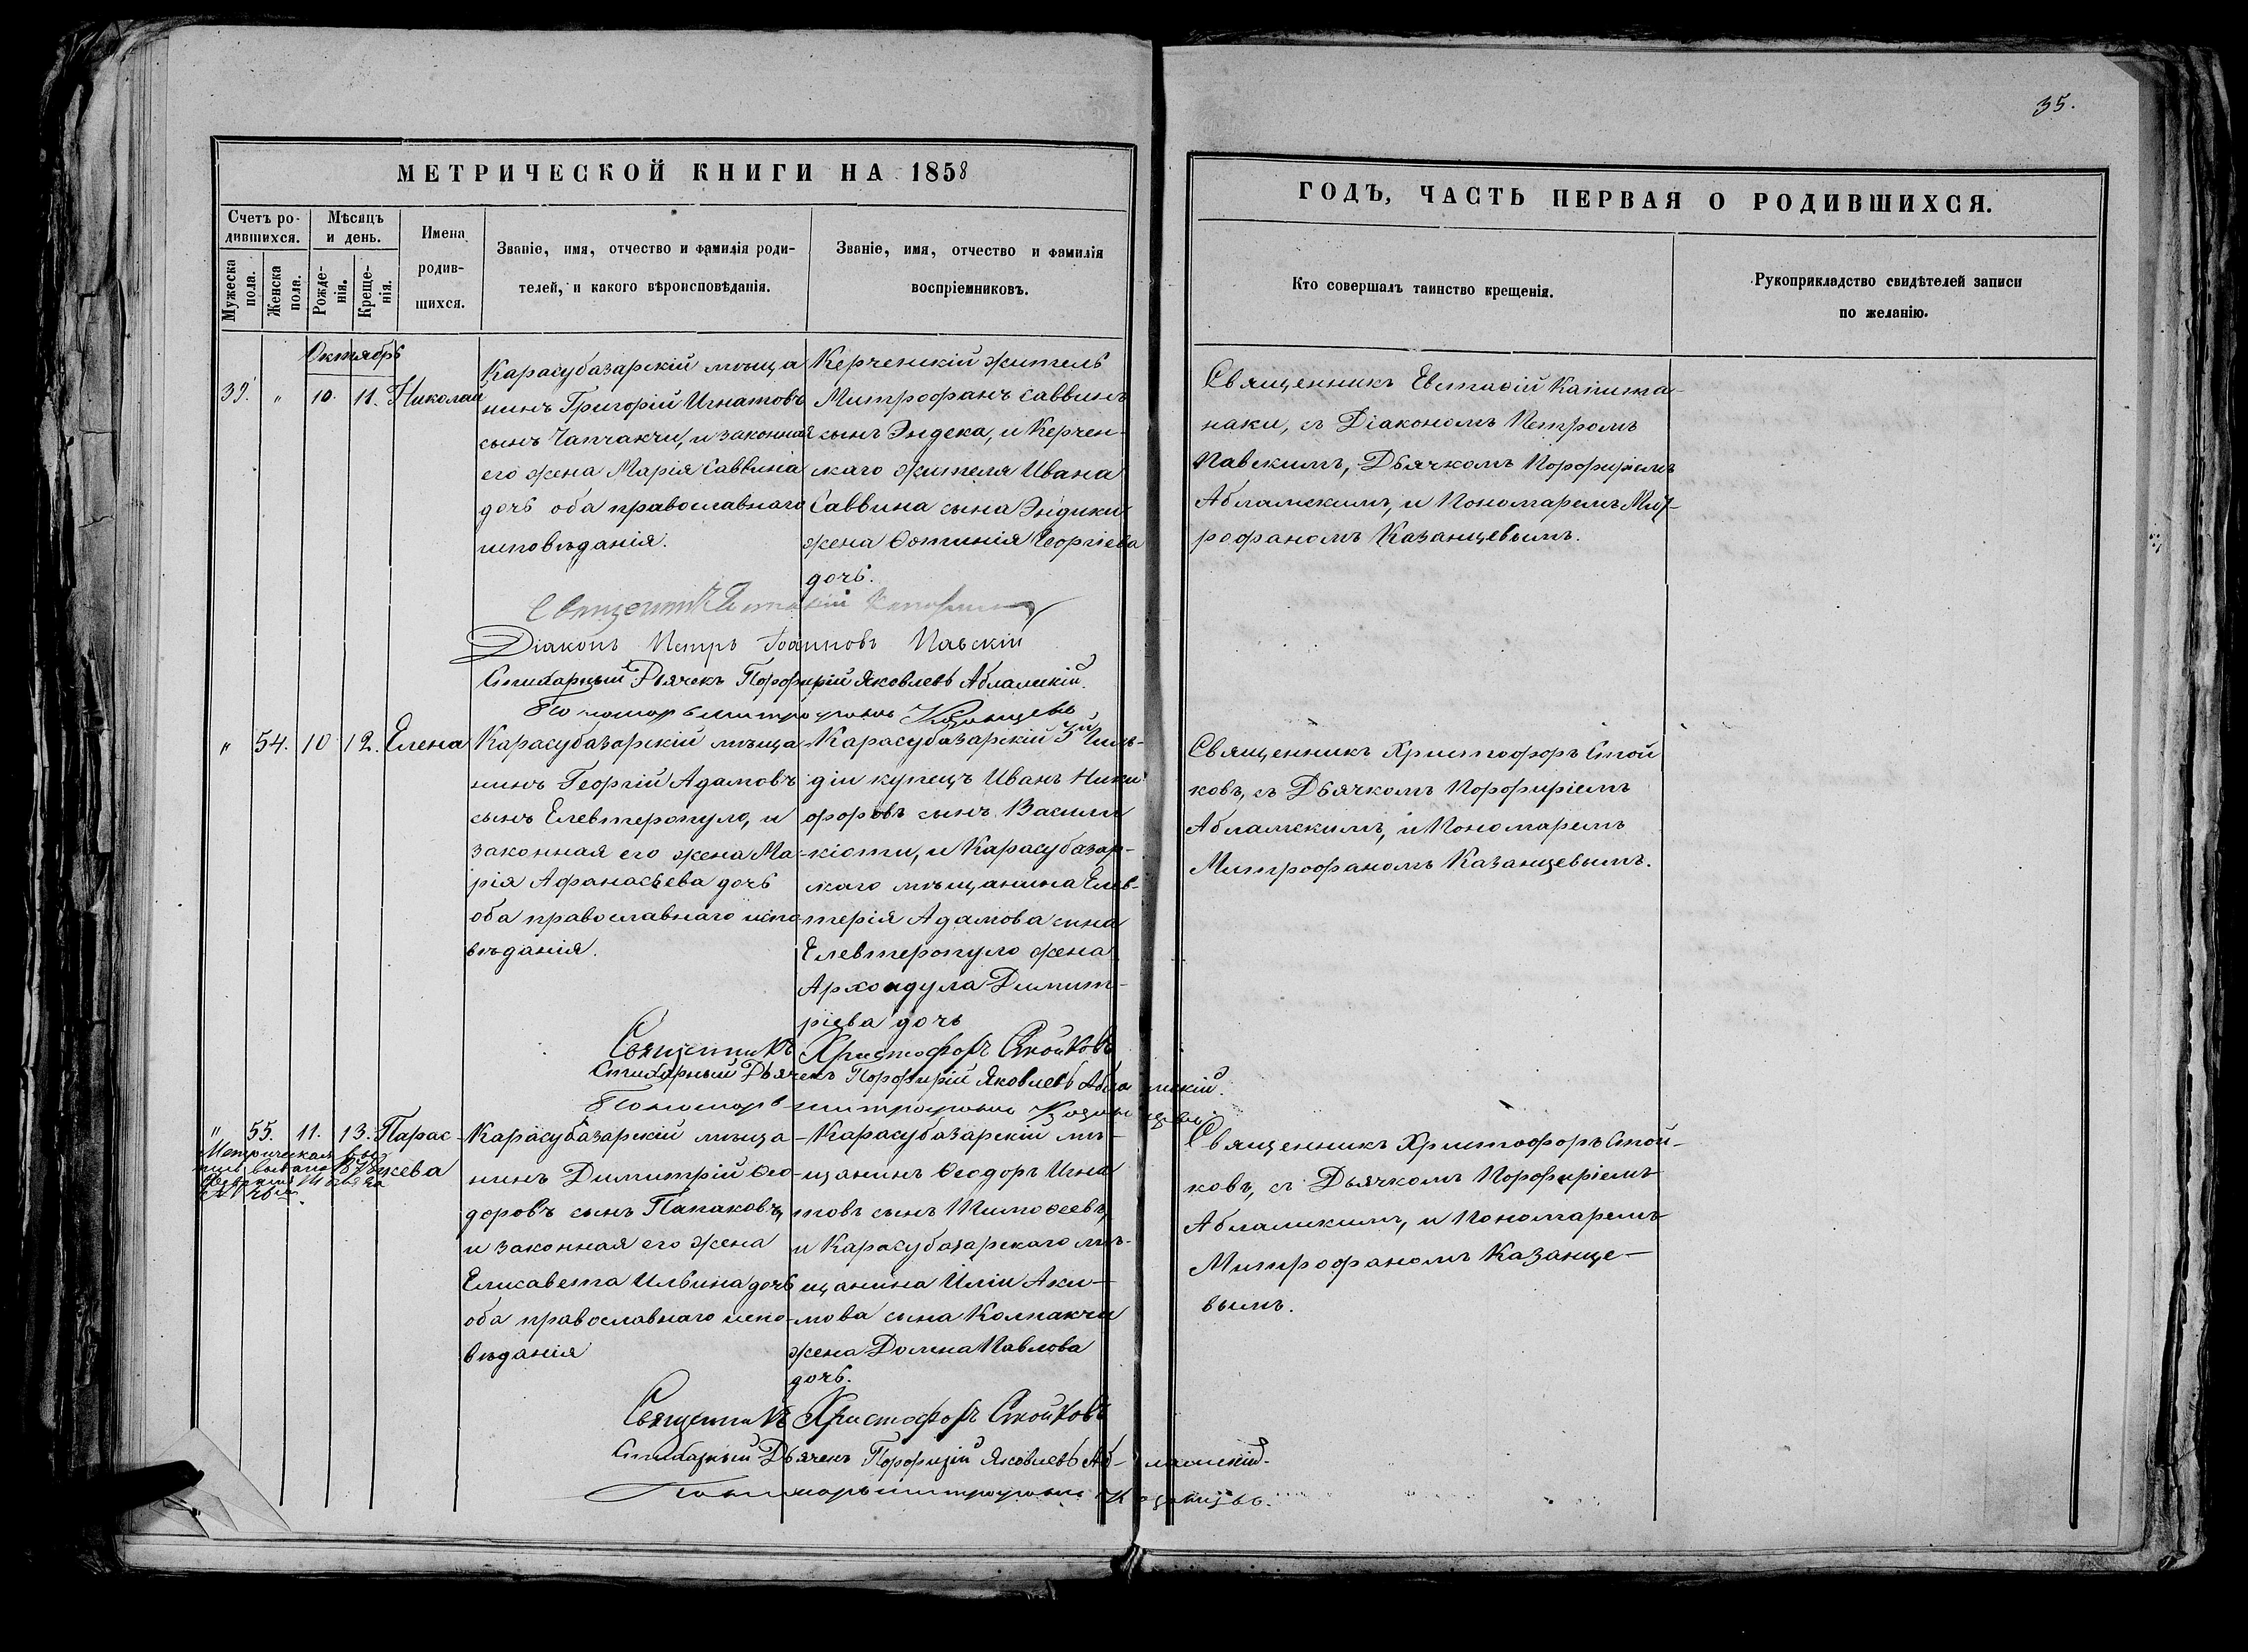 35.
МЕТРИЧЕСКОЙ КНИГИ НА 1858
Счетъ ро-
дившихся.
Мужеска
пола.
Женска
пола.
Мѣсяцъ
и день.
Рожде-
нія.
Креще-
нія.
Имена
родив-
шихся.
Званіе, имя, отчество и фамилія роди-
телей, и какого вѣроисповѣданія.
Званіе, имя, отчество и фамилія
воспріемниковъ.
ГОДЪ, ЧАСТЬ ПЕРВАЯ О РОДИВШИХСЯ.
Кто совершалъ таинство крещенія.
Рукоприкладство свидѣтелей записи
по желанію.
Октябрь
39. " 10. 11. Николай
Карасубазарскій мѣща
нинъ Григорій Игнатовъ
сынъ Чапчакчи, и законная
его жена Марія Саввина
дочь оба православнаго
исповѣданія.
Керченскій житель
Митрофанъ Саввинъ
сынъ Эндека, и Керчен-
скаго жителя Ивана
Саввина сына Эндики
жена Ѳотинія Георгіева
дочь.
Священникъ Евстафій Капита-
наки, съ Діакономъ Петромъ
Павскимъ, Дьячкомъ Порфиріемъ
Абламскимъ, и Пономаремъ Мит-
рофаномъ Казанцевымъ.
Священникъ Евстафій
Діаконъ Петръ Іоанновъ Павскій
Стихарный Дьячекъ Порфирій Яковлевъ Абламскій.
Пономарь Митрофанъ Казанцевъ
" 54. 10 12. Елена
Карасубазарскій мѣща-
нинъ Георгій Адамовъ
сынъ Елевтеропуло, и
законная его жена Ма-
рія Афанасьева дочь
оба православнаго испо
вѣданія.
Карасубазарскій 3й Гиль-
діи купецъ Иванъ Ники-
форовъ сынъ Васили
кіоти, и Карасубазар-
скаго мѣщанина Елев-
терія Адамова сына
Елевтеропуло жена
Архондула Димит-
ріева дочь
Священникъ Христофоръ Стой
ковъ, съ Дьячкомъ Порфиріемъ
Абламскимъ, и Пономаремъ
Митрофаномъ Казанцевымъ.
Священникъ Христофоръ Стойковъ
Стихарный Дьячекъ Порфирій Яковлевъ Абламскій.
Пономарь Митрофанъ Казанцевъ
" 55. 11. 13. Парас-
кева
Метрическая
Карасубазарскій мѣща-
нинъ Димитрій Ѳео-
доровъ сынъ Папаковъ,
и законная его жена
Елисавета Ильина дочь
оба православнаго испо-
вѣданія
Карасубазарскій мѣ-
щанинъ Ѳеодоръ Игна
товъ сынъ Тимоѳеевъ,
и Карасубазарскаго мѣ-
щанина Иліи Аки-
мова сына Колпакчи
жена Домна Павлова
дочь.
Священникъ Христофоръ Стой-
ковъ, съ Дьячкомъ Порфиріемъ
Абламскимъ, и Пономаремъ
Митрофаномъ Казанце-
вымъ.
Священникъ Христофоръ Стойковъ
Стихарный Дьячекъ Порфирій Яковлевъ Абламскій.
Пономарь Митрофанъ Казанцевъ.